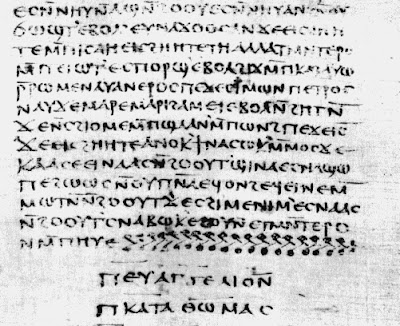 ⲉⲥⲛ̄ⲛⲏⲩ ⲛ̄ⲁϣ ⲛ̄ϩⲟⲟⲩ ⲉⲥⲛ̄ⲛⲏⲩ ⲁⲛ ϩⲛ̄ ⲟⲩ
ϭⲱϣⲧ ⲉⲃⲟⲗ ⲉⲩⲛⲁϫⲟⲟⲥ ⲁⲛ ϫⲉ ⲉⲓⲥϩⲏⲏ
ⲧⲉ ⲙ̄ⲡⲓⲥⲁ ⲏ ⲉⲓⲥϩⲏⲏⲧⲉ ⲧⲏ ⲁⲗⲗⲁ ⲧⲙⲛ̄ⲧⲉⲣⲟ
ⲙ̄ⲡⲉⲓⲱⲧ ⲉⲥⲡⲟⲣϣ ⲉⲃⲟⲗ ϩⲓϫⲙ̄ ⲡⲕⲁϩ ⲁⲩⲱ
ⲣ̄ⲣⲱⲙⲉ ⲛⲁⲩ ⲁⲛ ⲉⲣⲟⲥ ⲡⲉϫⲉ ⲥⲓⲙⲱⲛ ⲡⲉⲧⲣⲟⲥ
ⲛⲁⲩ ϫⲉ ⲙⲁⲣⲉ ⲙⲁⲣⲓϩⲁⲙ ⲉⲓ ⲉⲃⲟⲗ ⲛ̄ϩⲏⲧⲛ̄
ϫⲉ ⲛ̄ⲥϩⲓⲟⲙⲉ ⲙ̄ⲡϣⲁ ⲁⲛ ⲙ̄ⲡⲱⲛϩ ⲡⲉϫⲉ ⲓ̄ⲥ̄
ϫⲉ ⲉⲓⲥϩⲏⲏⲧⲉ ⲁⲛⲟⲕ ϯⲛⲁⲥⲱⲕ ⲙ̄ⲙⲟⲥ ϫⲉ
ⲕⲁⲁⲥ ⲉⲉⲓⲛⲁⲁⲥ ⲛ̄ϩⲟⲟⲩⲧ ϣⲓⲛⲁ ⲉⲥⲛⲁϣⲱ
ⲡⲉ ϩⲱⲱⲥ ⲛ̄ⲟⲩⲡ̄ⲛ̄ⲁ̄ ⲉϥⲟⲛϩ ⲉϥⲉⲓⲛⲉ ⲙ̄
ⲙⲱⲧⲛ̄ ⲛ̄ϩⲟⲟⲩⲧ ϫⲉ ⲥϩⲓⲙⲉ ⲛⲓⲙ ⲉⲥⲛⲁⲁⲥ
ⲛ̄ϩⲟⲟⲩⲧ ⲥⲛⲁⲃⲱⲕ ⲉϩⲟⲩⲛ ⲉⲧⲙⲛ̄ⲧⲉⲣⲟ
ⲛ̄ⲙ̄ⲡⲏⲩⲉ
ⲡⲉⲩⲁⲅⲅⲉⲗⲓⲟⲛ
ⲡⲕⲁⲧⲁ ⲑⲱⲙⲁⲥ